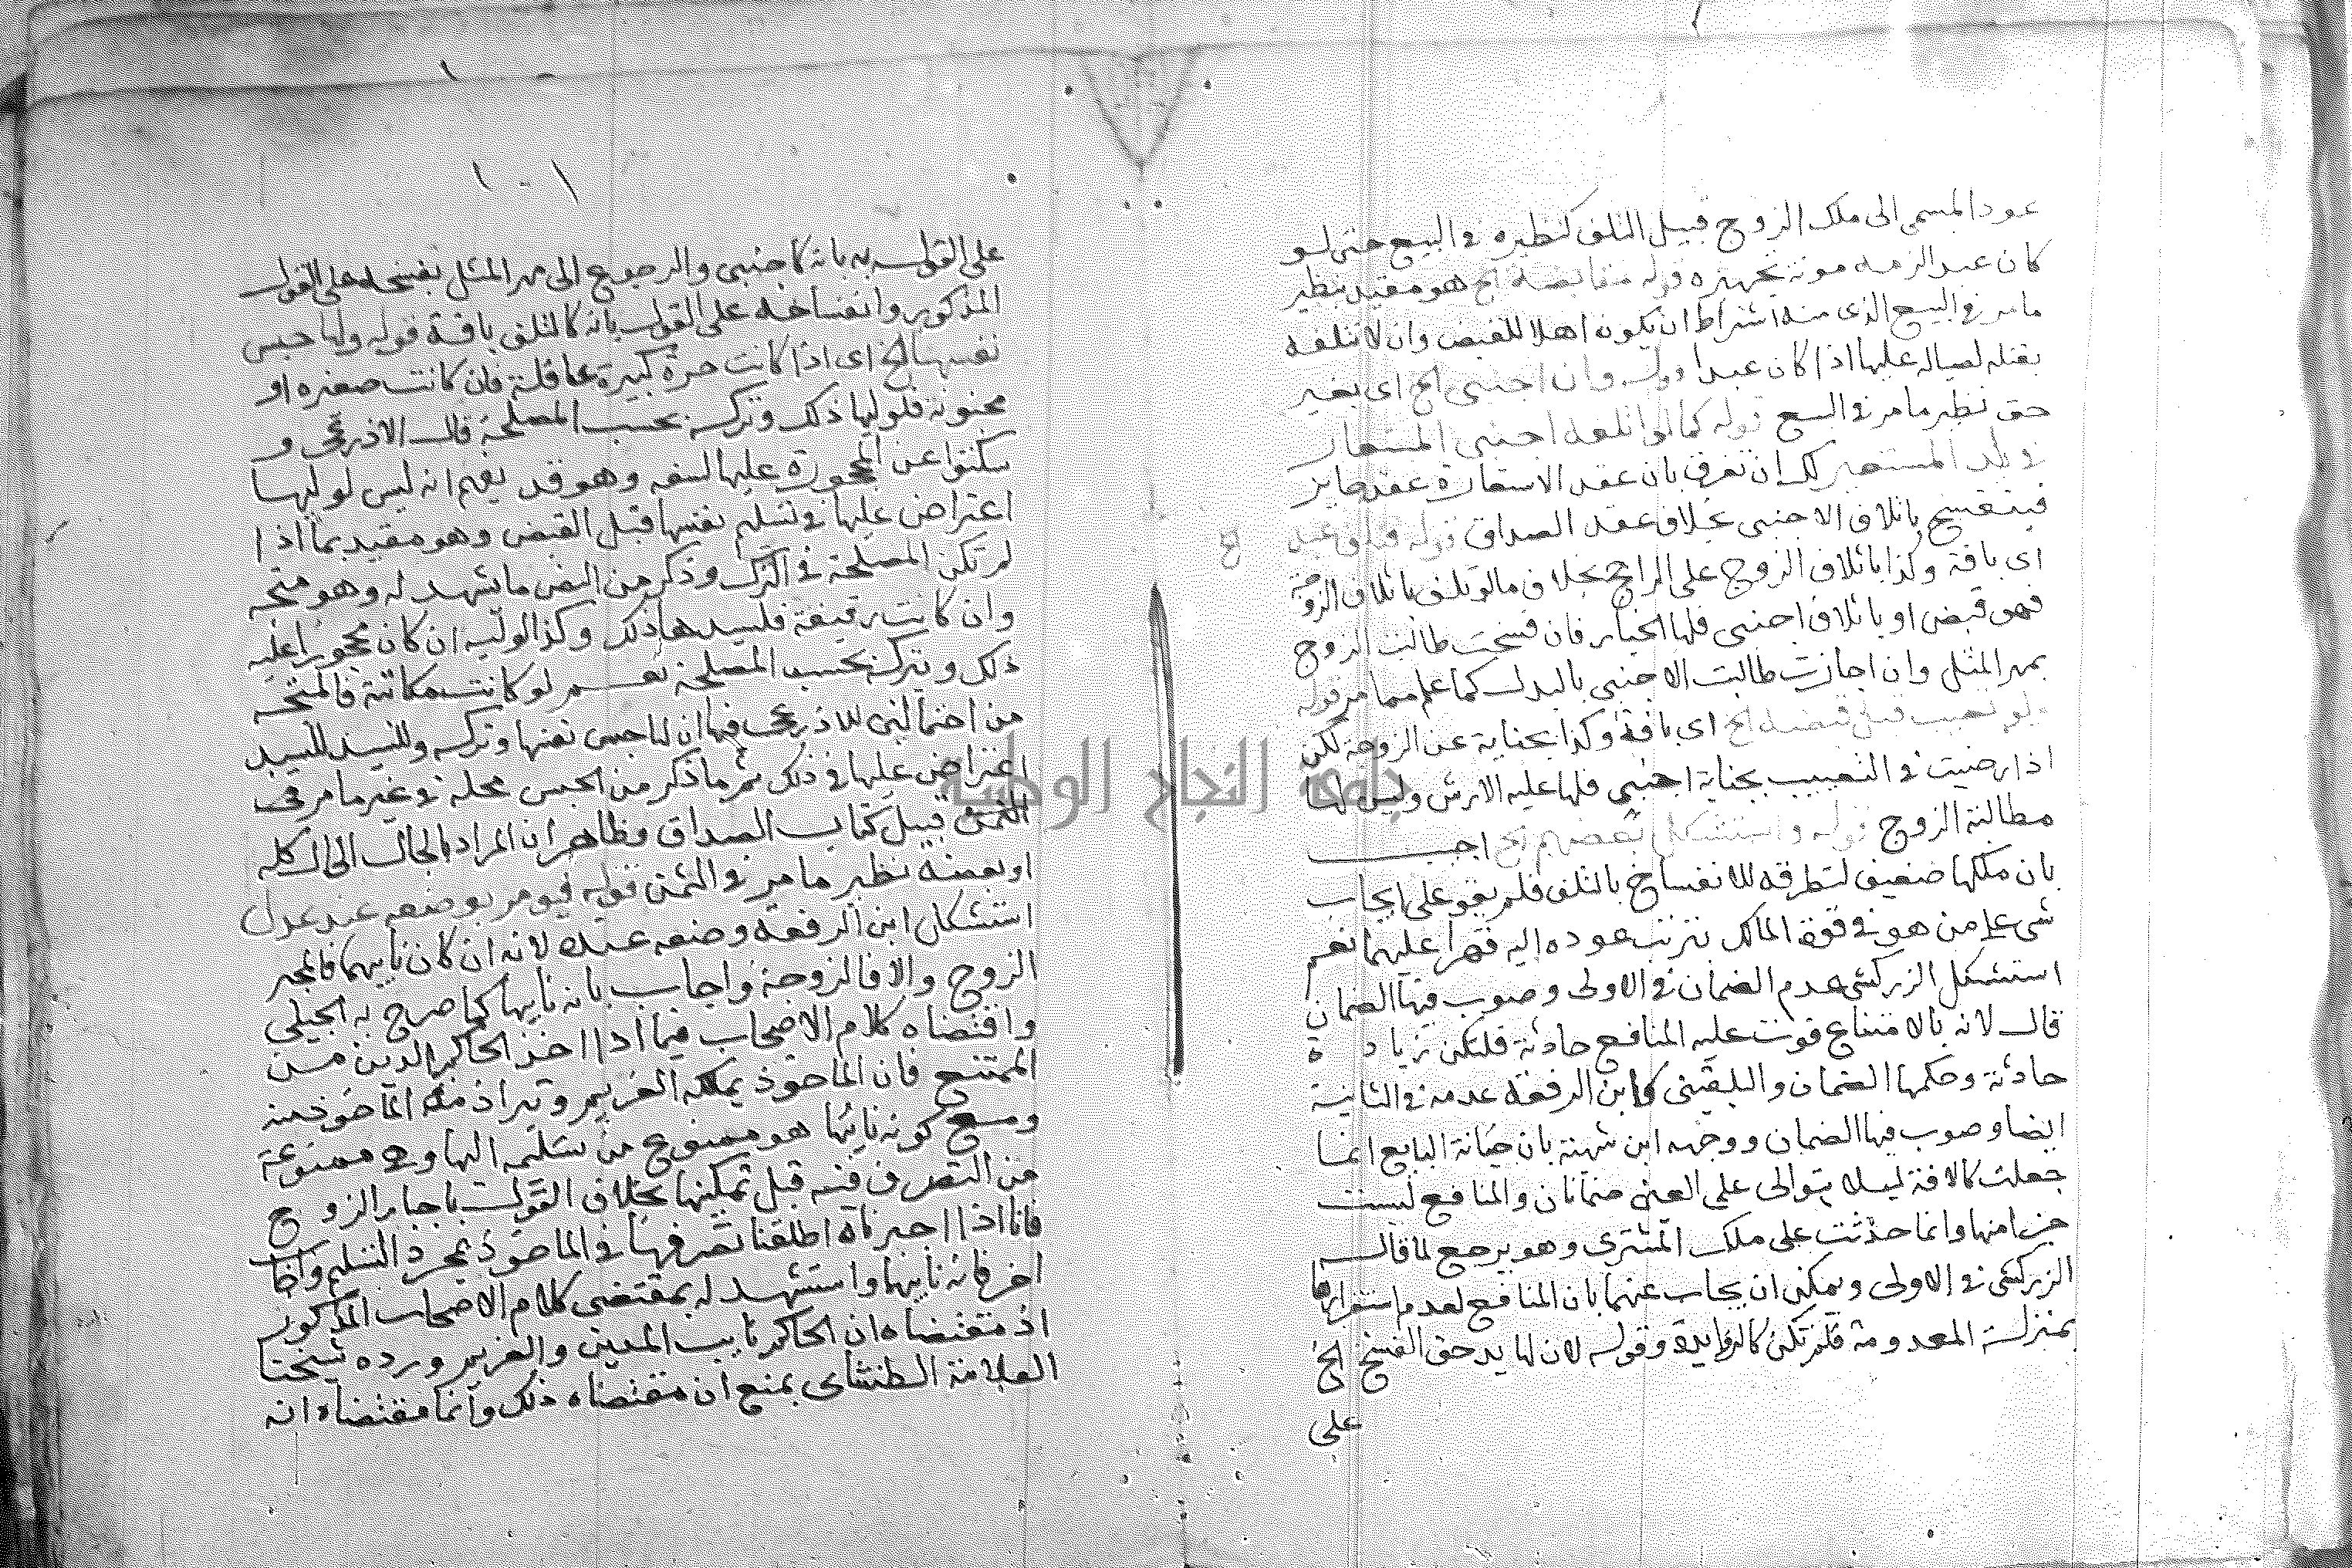 عود المسمى الى ملك الزوج قبيل التلف كنظيره في البيع حتى لو
كان عبد الزمه مونة تجهيزه قوله مقابضة الخ هو مقيد بنظير
مامر في البيع الذي منه اشتراط ان يكون اهلا للقبض وان لا تتلفه
بقتله لصياله عليها اذا كان عبدا وان اجنبى الخ اى بغير
حق نظير مامر في البيع قوله كما لو اتلفه اجنبى المستعار
في يد المستعير لك ان تفرق بان عقد الاستعارة عقد جايز
فينفسخ باتلاف الاجنبى بخلاف عقد الصداق قوله فتلف عبد الخ
اى بافة وكذا باتلاف الزوج على الراجح بخلاف مالو تلف باتلاف الزوجة
فهو قبض او باتلاف اجنبى فلها الخيار فان فسخت طالبت الزوج
بمهر المثل وان اجازت طالبت الاجنبى بالبدل كما علم مما مر قوله
ولو تعيب قبل قبضه الخ اى بافة وكذا بجناية عن الزوجة لكن
اذا رضيت في التعييب بجناية اجنبى فلها عليه الارش وليس لها
مطالبة الزوج قوله واستشكل بعضهم الخ اجيب
بان ملكها ضعيف لتطرقه للانفساخ بالتلف فلم يقو على ايجاب
شى على من هو في قوة المالك بترتب عوده اليه قهرا عليهما نعم
استشكل الزركشى عدم الضمان في الاولى وصوب فيها الضمان
قال لانه بالامتناع فوت عليه المنافع حادثة فلتكن زيادة
حادثة وحكمها الضمان والبلقينى كابن الرفعة عدمه في الثانية
ايضا وصوب فيها الضمان ووجهه ابن شهبة بان جناية البايع انما
جعلت كالافة ليلا يتوالى على العين ضمانان والمنافع ليست
جزا منها وانما حدثت على ملك المشترى وهو يرجع لما قال
الزركشى في الاولى ويمكن ان يجاب عنهما بان المنافع لعدم استقرارها
بمنزلة المعدومة فلم تكن كالزوايد وقوله لان لها يد حق الفسخ الخ
على
على القول به بانه كاجنبى والرجوع الى مهر المثل بفسخه على القول
المذكور وانفساخه على القول بانه كالتلف بافة قوله ولها حبس
نفسها الخ اى اذا كانت حرة كبيرة عاقلة فان كانت صغيره او
مجنونة فلوليها ذلك وتركه بحسب المصلحة قال الاذرعى و
سكتوا عن المحجورة عليها لسفه وهو قد يفهم انه ليس لوليها
اعتراض عليها في تسليم نفسها قبل القبض وهو مقيد بما اذا
لم تكن المصلحة في الترك وذكر من النص ما يشهد له وهو متجه
وان كانت رقيقة فلسيدها ذلك وكذا لوليه ان كان محجورا عليه
ذلك ويتركه بحسب المصلحة نعم لو كانت مكاتبة فالمتجه
من احتمالين للاذرعى فيها ان لها حبس نفسها وتركه وليس للسيد
اعتراض عليها في ذلك ثم ما ذكر من الحبس محله في غير ما مر في
الثمن قبيل كتاب الصداق وظاهر ان المراد بالحال الى ال كله
او بعضه نظير ما مر في الثمن قوله فيومر بوضعه عند عدل
استشكل ابن الرفعة وضعه عنده لانه ان كان نايبهما فالمجبر
الزوج والا فالزوجة واجاب بانه نايبها كما صرح به الجيلي
واقتضاه كلام الاصحاب فيما اذا اخذ الحاكم الدين من
الممتنع فان الماخوذ يملكه الغريم وتبرا ذمة الماخوذ منه
ومع كونه نايبها هو ممنوع من تسليمه اليها وهى ممنوعة
من التصرف فيه قبل تمكينها بخلاف القول باجبار الزوج
فانا اذا اجبرناه اطلقنا تصرفها في الماخوذ بمجرد التسليم واجاب
اخر فانه نايبهما واستشهد له بمقتضى كلام الاصحاب المذكور
اذ مقتضاه ان الحاكم نايب المدين والغريم ورده شيخنا
العلامة الطنتداى بمنع ان مقتضاه ذلك وانما مقتضاه انه
جامعة النجاح الوطنية